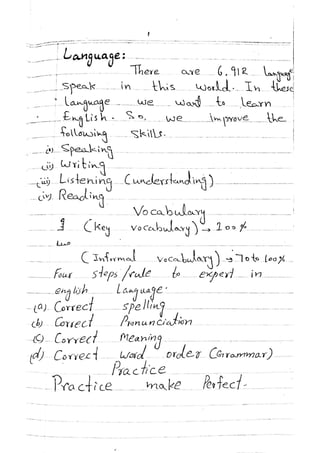 Language:
There are 6,912 Language
speak in this world. In these
language we want to learn
English. So, we Improve the
following skills.
(i) Speaking
(ii) Writing
(iii) Listening (understanding)
(iv) Reading
Vocabulary
(key vocabulary) → 200 %
(Informal vocabulary) → 70 to 100%
Four steps / rule to expert in
english Language.
(a) Correct spelling
(b) Correct Pronunciation
(c) Correct Meaning
(d) Correct word order (Grammar)
Practice
Practice make Perfect.